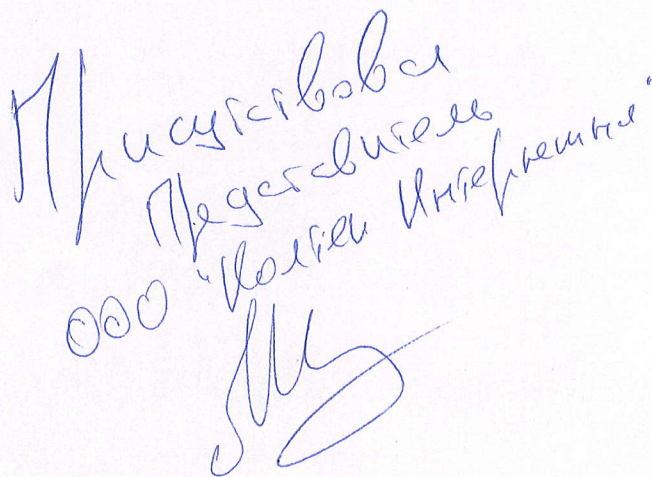 Присутствовал
Представитель
ООО "Колтек Интернешнл"